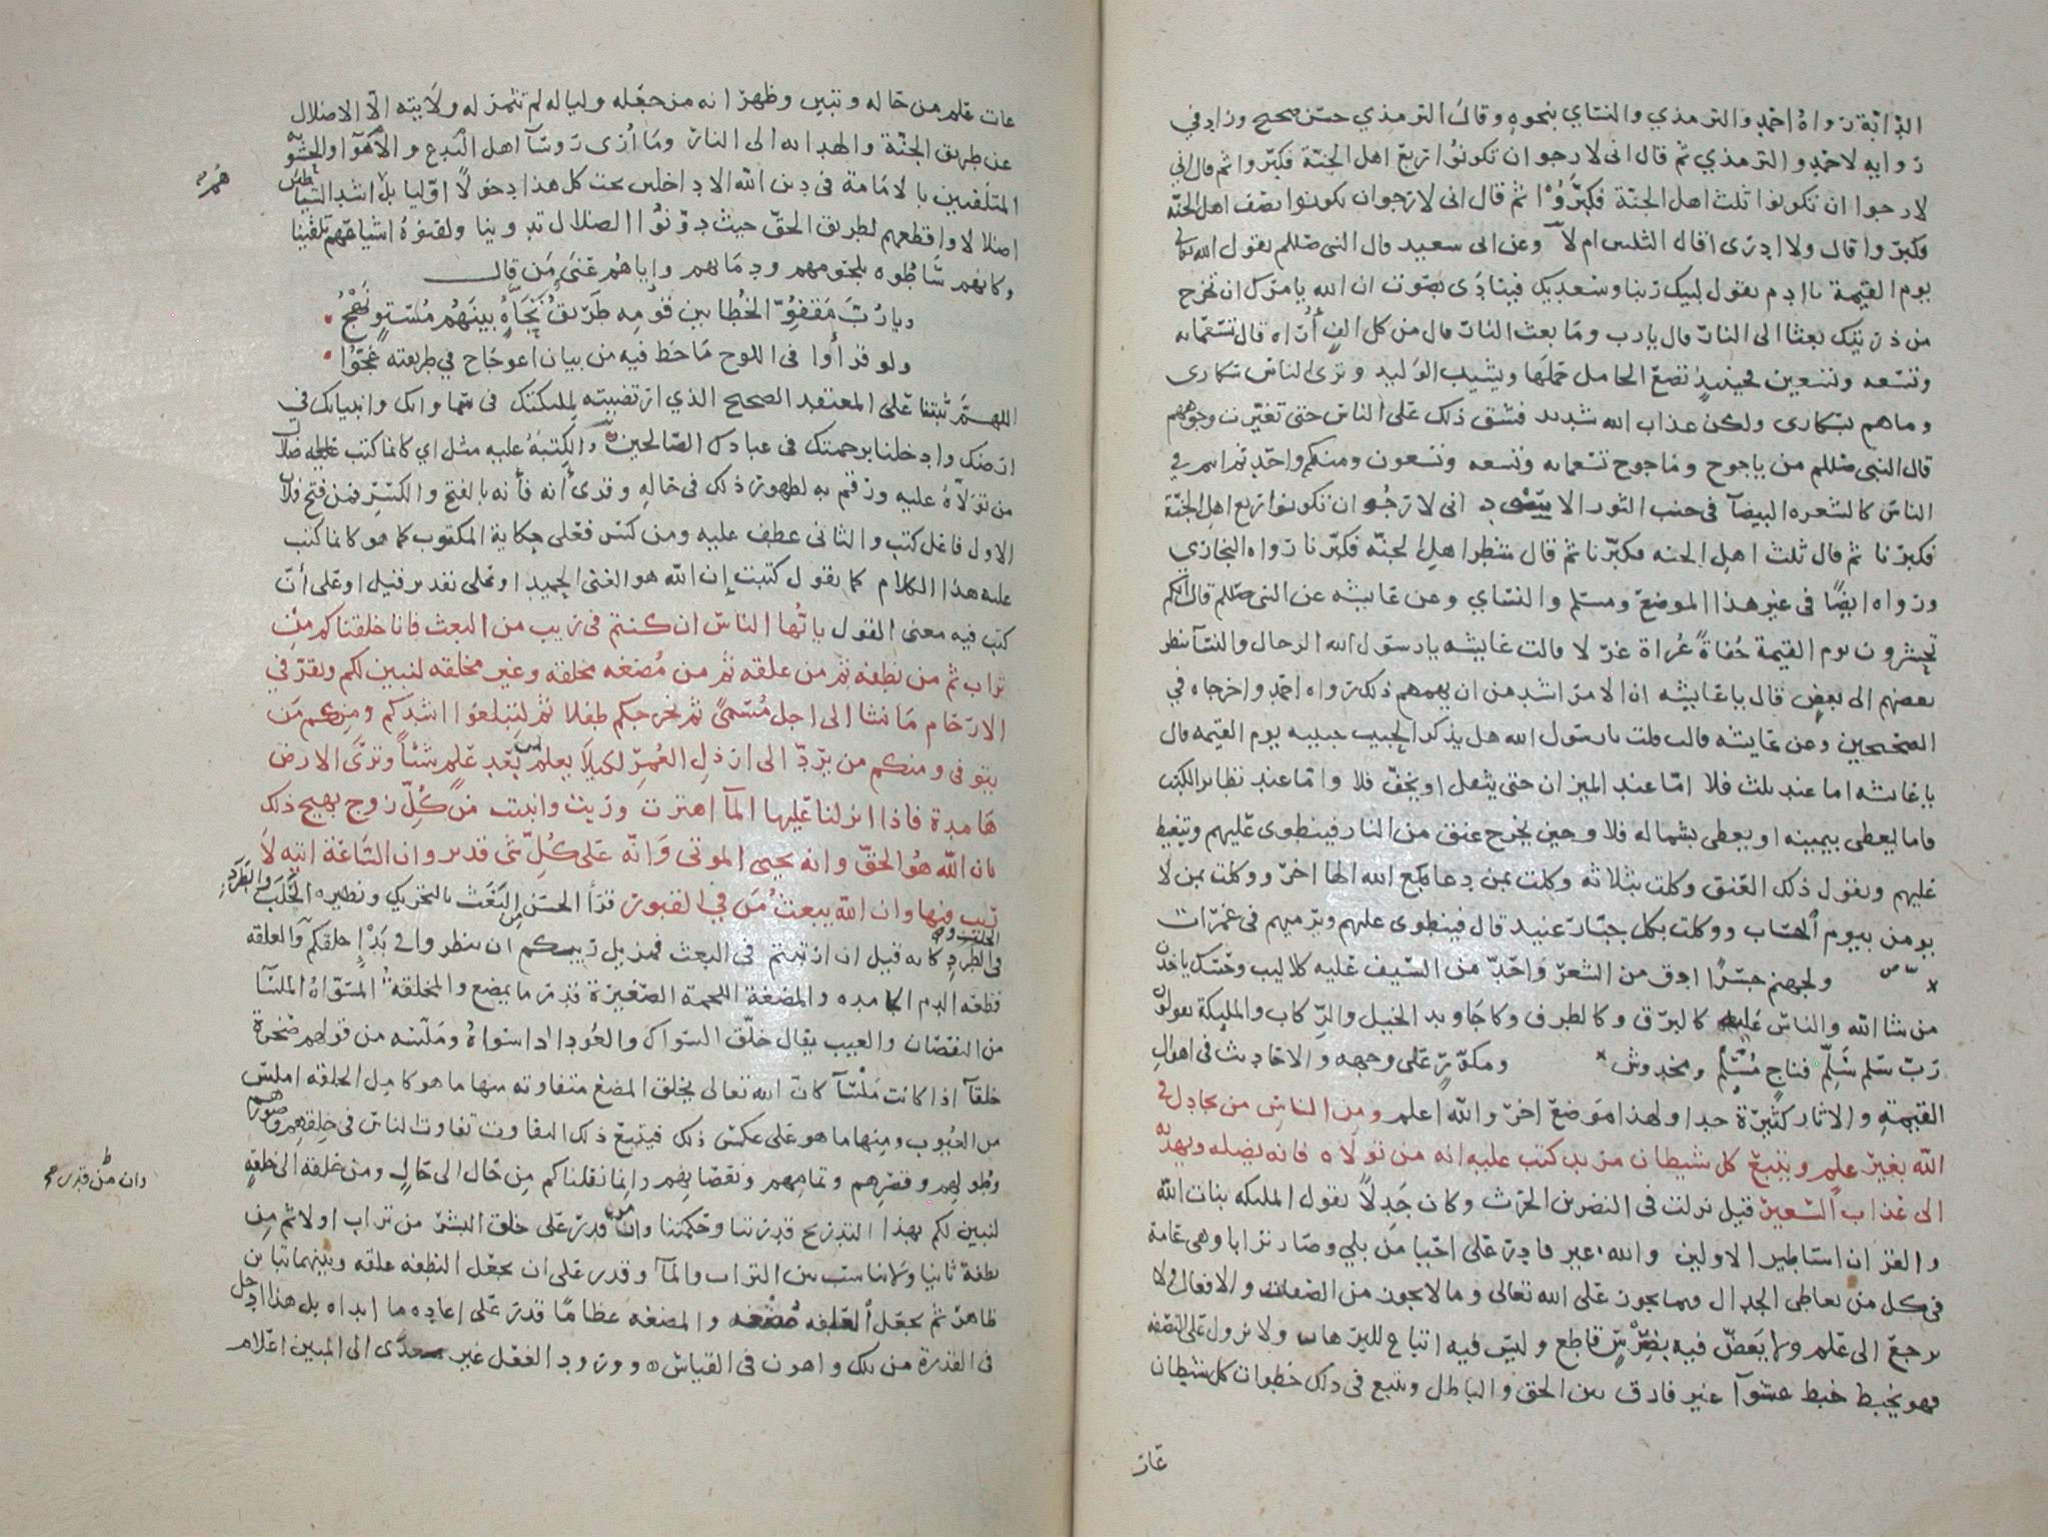 الدابة رواه احمد والترمذي والنساي بنحوه وقال الترمذي حسن صحيح وزاد في
روايه لاحمد والترمذي ثم قال اني لارجو ان تكونوا اربع اهل الجنة فكبروا ثم قال اني
لارجوا ان تكونوا ثلث اهل الجنة فكبروا ثم قال اني لارجوان تكونوا نصف اهل الجنة
فكبروا قال ولا ادري اقال الثلثين ام لا وعن ابي سعيد قال النبي صللم يقول الله تعالى
يوم القيمة يا ادم يقول لبيك ربنا وسعديك فينادى بصوت ان الله يامرك ان تخرج
من ذريتك بعثا الى النار قال يارب وما بعث النار قال من كل الف أراه قال تسعمائه
وتسعه وتسعين فحينئذ تضع الحامل حملها ويشيب الوليد وترى الناس سكارى
وما هم بسكارى ولكن عذاب الله شديد فشق ذلك على الناس حتى تغيرت وجوههم
قال النبي صللم من ياجوج وماجوج تسعمائه وتسعه وتسعون ومنكم واحد ثم انتم في
الناس كالشعره البيضآ في جنب الثور الاسود اني لارجو ان تكونوا اربع اهل الجنة
فكبرنا ثم قال ثلث اهل الجنه فكبرنا ثم قال شطر اهل الجنه فكبرنا رواه البخاري
ورواه ايضًا في غير هذا الموضع ومسلم والنساي وعن عايشه عن النبي صللم قال انكم
تحشرون يوم القيمة حُفاةً عُراة غرلا قالت عايشه يارسول الله الرجال والنسآ ينظر
بعضهم الى بعض قال ياعايشه ان الامر اشد من ان يهمهم ذلك رواه احمد واخرجاه في
الصحيحين وعن عايشه قالت قلت يارسول الله هل يذكر الحبيب حبيبه يوم القيمه قال
ياعايشه اما عند ثلث فلا اما عند الميزان حتى يثقل او يخف فلا واما عند تطاير الكتب
فاما يعطى بيمينه او يعطى بشماله فلا وحين يخرج عنق من النار فينطوى عليهم ويتغيظ
عليهم ويقول ذلك العنق وكلت بثلاثه وكلت بمن دعا مع الله الها اخر ووكلت بمن لا
يومن بيوم الحساب ووكلت بكل جبار عنيد قال فينطوى عليهم ويرميهم في غمرات
ولجهنم جسرًا ادق من الشعر واحد من السيف عليه كلاليب وحسك ياخذن
من شا الله والناس عليه كالبرق وكالطرف وكاجاويد الخيل والركاب والمليكة يقولون
رب سلم سلم فناج مسلم ومخدوش ومكور على وجهه والاحاديث في اهوال
القيمة والاثار كثيرة جدا ولهذا موضع اخر والله اعلم ومن الناس من يجادل في
الله بغير علم ويتبع كل شيطان مريد كتب عليه انه من تولاه فانه يضله ويهديه
الى عذاب السعير قيل نزلت في النضر بن الحرث وكان جدلًا يقول المليكه بنات الله
والقرآن اساطير الاولين والله غير قادر على احيا من بلي وصار ترابا وهى عامة
في كل من تعاطى الجدال فيما يجوز على الله تعالى وما لا يجوز من الصفات والافعال ولا
يرجع الى علم ولا يعض فيه بضرس قاطع وليس فيه اتباع للبرهان ولا نزول على النصفه
فهو يخبط خبط عشوآ غير فارق بين الحق والباطل ويتبع في ذلك خطوات كل شيطان
عات
عات علم من حاله وتبين وظهر انه من جعله وليا له لم تثمر له ولايته الا الاضلال
عن طريق الجنة والهداية الى النار وما ارى روسآ اهل البدع والاهوآ والحشويه
المتلقبين بالامامة في دين الله الا داخلين تحت كل هذا دخولاً اوليا بل اشد الشياطين
اضلالا واقطعهم لطريق الحق حيث دونوا الضلال تدوينا ولقنوه اشياعهم تلقينا
وكانهم ساطوه بلحومهم ودمائهم وإياهم عنى من قال
ويارب مقفو الخطا بين قومه طريق نجاة بينهم مستو نهج
ولو قرأوا في اللوح ما خط فيه من بيان اعوجاج في طريقته عجوا
اللهم ثبتنا على المعتقد الصحيح الذي ارتضيته لمليكتك في سماواتك وانبيائك في
ارضك وادخلنا برحمتك في عبادك الصالحين والكتبة عليه مثل اي كانما كتب عليه ضلال
من تولاه عليه ورقم به لظهور ذلك في حاله وقرئ أنه فأنه بالفتح والكسر فمن فتح فلان
الاول فاعل كتب والثاني عطف عليه ومن كسر فعلى حكاية المكتوب كما هو كانما كتب
عليه هذا الكلام كما يقول كتبت إن الله هو الغنى الحميد او على تقدير قيل او على أن
كتب فيه معنى القول ياءيها الناس ان كنتم في ريب من البعث فانا خلقناكم من
تراب ثم من نطفه ثم من علقه ثم من مضغه مخلقه وغير مخلقه لنبين لكم ونقر في
الارحام ما نشا الى اجل مسمى ثم نخرجكم طفلا ثم لتبلغوا اشدكم ومنكم من
يتوفى ومنكم من يرد الى ارذل العمر لكيلا يعلم من بعد علم شيأ وترى الارض
هامدة فاذا انزلنا عليها المآ اهتزت وربت وانبتت من كل زوج بهيج ذلك
بان الله هو الحق وانه يحيى الموتى وانه على كل شي قدير وان الساعة اتيه لا
ريب فيها وان الله يبعث من في القبور قرأ الحسن من البعث بالتحريك ونظيره الجلب والطرد
في الجلب والطرد كانه قيل ان ارتبتم في البعث فمزيل ريبكم ان ينظروا في بدإ خلقكم والعلقه
قطعه الدم الجامده والمضغة اللحمة الصغيرة قدر ما يمضغ والمخلقة المسواة الملسآ
من النقصان والعيب يقال خلق السواك والعود اذا سواه وملسه من قولهم صخرة
خلقآ اذا كانت ملسآ كان الله تعالى يخلق المضغ متفاوته منها ما هو كامل الخلقه املس
من العيوب ومنها ما هو على عكس ذلك فيتبع ذلك التفاوت تفاوت الناس في خلقهم وصورهم
وطولهم وقصرهم وتمامهم ونقصانهم وإنما نقلناكم من حال الى حال ومن خلقة الى خلقة
لنبين لكم بهذا التدريج قدرتنا وحكمتنا وان من قدر على خلق البشر من تراب اولا ثم من
نطفة ثانيا ولا تناسب بين التراب والمآ وقدر على ان يجعل النطفه علقه وبينهما تباين
ظاهر ثم يجعل العلقه مضغه والمضغه عظامًا قدر على اعاده ما ابداه بل هذا ادخل
في القدرة من تلك واهون في القياس وورود الفعل غير معدى الى المبين اعلام
وان من قدر صح